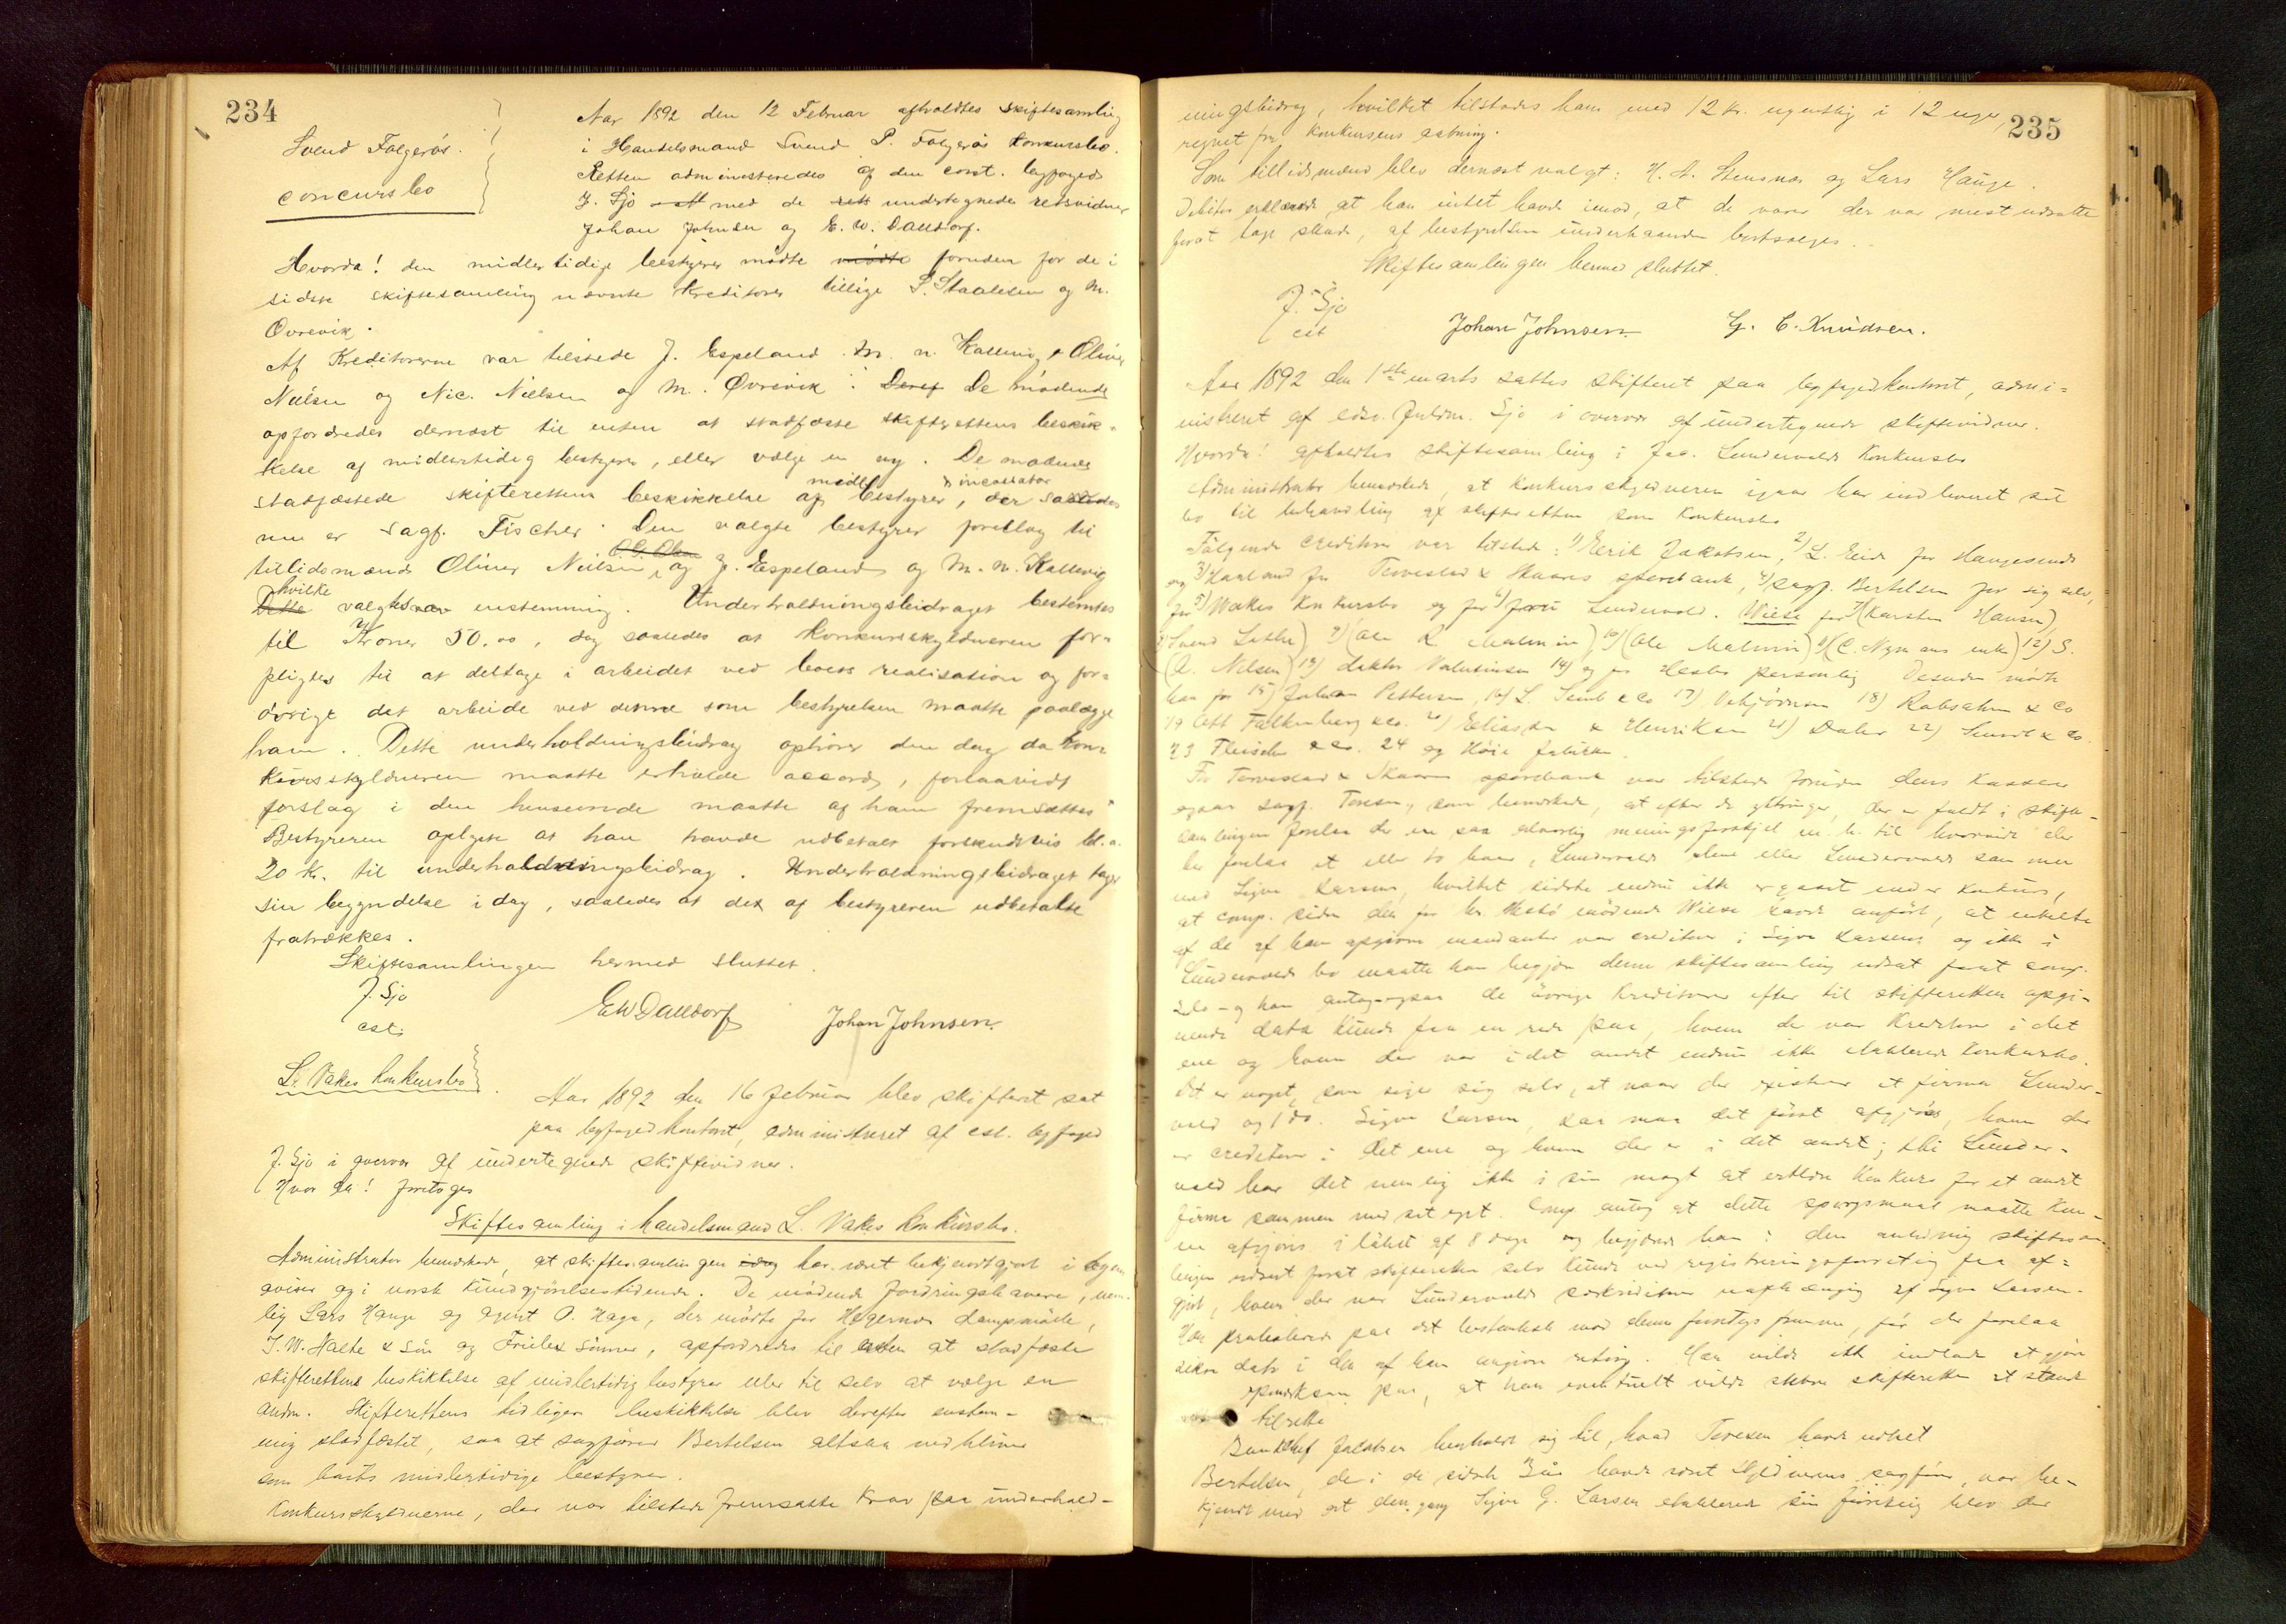 234
Svend Falgerøs
concursbo
Aar 1892 den 12 Februar afholdtes skiftesamling
i Handelsmand Svend P. Falgerøs Konkursbo.
Retten administreredes af den const. byfoged
J. Sjo med de undertegnede retsvidner
Johan Johnsen og E. W. Dalldorf.
Hvorda! den midlertidige bestyrer mødte foruden for de i
sidste skiftesamling nævnte Kreditorer tillige P. Staalesen og M.
Øvrevik.
Af Kreditorerne var tilstede J. Espeland M. N. Kallevig Oliver
Nielsen og Nic. Nielsen og M. Øvrevik. De mødende
opfordredes dernæst til enten at stadfæste skifterettens beskik-
kelse af midlertidig bestyrer, eller vælge en ny. De mødende
stadfæstede skifterettens beskikkelse af midl. bestyrer & incassator, der saaledes
nu er sagf. Fischer. Den valgte bestyrer foreslog til
tillidsmænd Oliver Nielsen, og J. Espeland og M. N. Kallevig
hvilke valgtes enstemmig. Underholdningsbidraget bestemtes
til Kroner 50.00, dog saaledes at Konkursskyldneren for-
pligtes til at deltage i arbeidet ved boets realisation og for-
øvrigt det arbeide ved denne som bestyrelsen maatte paalægge
ham. Dette underholdningsbidrag ophører den dag da kon-
kursskyldneren maatte erholde accord, forsaavidt
forslag i den henseende maatte af ham fremsættes
Bestyreren oplyste at han havde udbetalt forskudsvis til
20 Kr. til underholdningsbidrag. Underholdningsbidraget tager
sin begyndelse i dag, saaledes at det af bestyreren udbetalte
fratrækkes.
Skiftesamlingen hermed sluttet.
J. Sjo
cst.
EWDalldorf
Johan Johnsen.
L. Vakes Konkursbo
Aar 1892 den 16 februar blev skifteret sat
paa byfogedkontoret, administreret af cst. byfoged
J. Sjo i overvær af undertegnede skiftevidner.
Hvor da! foretoges
Skiftesamling i handelsmand L. Vakes Konkursbo.
Administrator bemærkede, at skiftesamlingen har været bekjendtgjort i byens
aviser og i norsk Kundgjørelsestidende. De mødende Fordringshavere, nem-
lig Lars Hauge og agent O. Haga, der mødte for Hegernes dampmølle,
J. W. Halte & Søn og Friele & Sønner, opfordredes til at stadfæste
skifterettens beskikkelse af midlertidig bestyrer eller til selv at vælge en
anden. Skifterettens tidligere beskikkelse blev derefter enstem-
mig stadfæstet, saa at sagfører Bertelsen altsaa vedbliver
som boets midlertidige bestyrer.
Konkursskyldnerne, der var tilstede fremsatte Krav paa underhold-
235
ningsbidrag, hvilket tilstodes ham med 12 kr. ugentlig i 12 uger,
regnet fra konkursens aabning.
Som tillidsmænd blev dernæst valgt: H. A. Stensnæs og Lars Hauge.
Debitor erklærede at han intet havde imod, at de varer der var mest udsatte
forat tage skade, af bestyrelsen underhaanden bortsælges.
Skiftesamlingen hermed sluttet.
J. Sjo
cst
Johan Johnsen
G. E. Knudsen.
Aar 1892 den 1ste marts sattes skifteret paa byfogedkontoret, admi-
nistreret af edsv. fuldm. Sjo i overvær af undertegnede skiftevidner.
Hvorda! afholdtes skiftesamling i Jac. Lundervolds Konkursbo
Administrator bemærkede, at konkursskyldneren igaar har indleveret sit
bo til behandling af skifteretten som Konkursbo
Følgende creditorer var tilstede: 1) Eerik Jakobsen, 2) L. Eide for Haugesunds
og 3) Haaland for Torvestad & Skaares sparebank, 4) sagf. Bertelsen for sig selv,
for 5) Wakes Konkursbo og for 6) fru Lundervold. Wiese for 7) (Karsten Hansen)
8) Svend Lothe) 9) (Ole R. Malmin) 10) (Ole Malmin) 11) (C. Nymans enke) 12) S.
(A. Nilsen) 13) doktor Valentinsen 14) og for Hesbø personlig Desuden mødte
han for 15) Johan Pettersen, 16) L. Semb & Co 17) 18) Rabsahm & Co
19 Ost Falkenberg & Co. 20) Eliassen & Henriksen 21) Daler 22) & Co.
23 Fleischer & Co. 24 og Høie fabriker
For Torvestad & Skaare sparebank var tilstede foruden dens Kasserer
ogsaa sagf. Toresen, som bemærkede, at efter de ytringer, der er faldt i skifte-
samlingen forelaa der en saa alvorlig meningsforskjel m. h. til hvorvidt der
her forelaa et eller to boer, Lundervolds alene eller Lundervolds sammen
med Sigve Larsens, hvilket sidste endnu ikke er gaaet under Konkurs,
at comp. siden den for hr. Hesbø mødende Wiese havde anført, at enkelte
af de af ham opgivne mandanter var creditorer i Sigve Larsens og ikke i
Lundervolds bo maatte han begjære denne skiftesamling udsat forat comp.
selv og han antog ogsaa de øvrige Kreditorer efter til skifteretten opgi-
vende data kunde faa en rede paa, hvem der var Kreditorer i det
ene og hvem der var i det andet endnu ikke etablerede Konkursbo.
Det er noget, som siger sig selv, at naar der existerer et firma Lunder-
vold og 1 do. Sigve Larsen, saa maa det først afgjøres, hvem der
er creditorer i det ene og hvem der er i det andet; thi Lunder-
vold har det nemlig ikke i sin magt at erklære Konkurs for et andet
firma sammen med sit eget. Comp. antog at dette spørgsmaal maatte kun-
ne afgjøres i løbet af 8 dage og begjærede han i den anledning skiftesam-
lingen udsat forat skifteretten selv kunde ved registreringsforretning faa af-
gjort, hvem der var Lundervolds særkreditorer uafhængig af Sigve Larsen.
Han protesterede paa det bestemteste mod denne forretnings fremme, før der forelaa
sikre data i den af ham angivne retning. Han vilde ikke indlade at gjøre
opmærksom paa, at han eventuelt vilde skifteretten et
tilrette
Bankchef Jakobsen henholdt sig til, hvad Toresen havde udtalt
Bertelsen, der i de sidste 3 Aar havde været skyldnerens sagfører, var be-
kjendt med at den gang Sigve G. Larsen etablerede sin forretning blev der